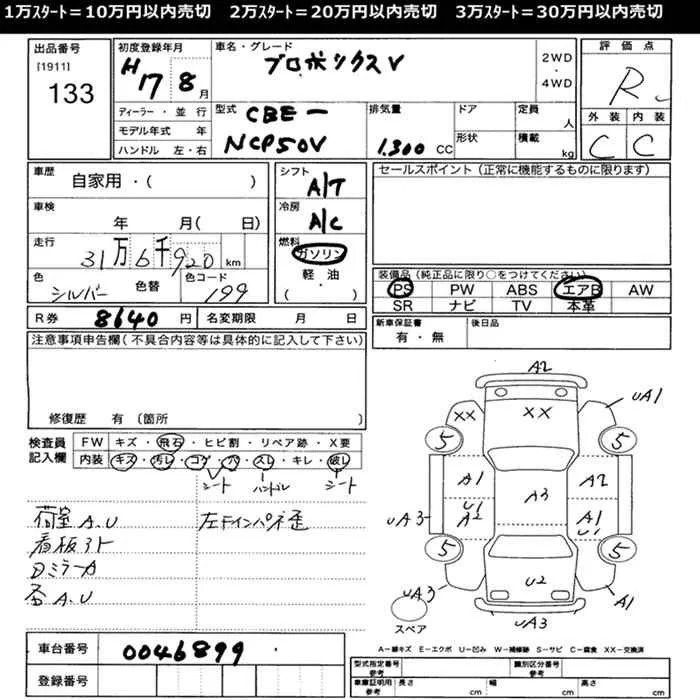 1万ｽﾀｰﾄ＝10万円以内売切　2万ｽﾀｰﾄ＝20万円以内売切　3万ｽﾀｰﾄ＝30万円以内売切
出品番号
[1911]
133
初度登録年月
H17 8月
車名・グレード
プロボックスV
2WD
・
4WD
評価点
R
外装 内装
C C
ディーラー・並行
モデル年式 年
ハンドル 左・右
型式
CBE－
NCP50V
排気量
1.300 CC
ドア
形状
定員
人
積載
kg
車歴
自家用・( )
車検
年 月( 日)
走行
31万6千920 km
色
シルバー
色替
色コード
199
シフト
A/T
冷房
A/C
燃料
ガソリン
軽・油
( ・ )
セールスポイント(正常に機能するものに限ります)
装備品(純正品に限り○をつけてください)
PS PW ABS エアB AW
SR ナビ TV 本革
新車保証書
有・無
後日品
R券 8640 円 名変期限 月 日
注意事項申告欄(不具合内容等は具体的に記入して下さい)
修復歴 有 〔箇所 〕
検査員
記入欄
FW キズ・飛石・ヒビ割・リペア跡・X要
内装 キズ・汚レ・コゲ・穴・スレ・キレ・破レ
シート ハンドル シート
荷室A.U 左Fインパネ歪
看板アト
Dミラー A
各A.U
車台番号 0046899
登録番号
A2
UA1
XX XX
5 5
A1 A3 A2
U1 A2 A1 U1
UA3
5 5
U2
UA3 A1
UA3
スペア
A－線キズ E－エクボ U－凹み W－補修跡 S－サビ C－腐食 XX－交換済
型式指定番号 参考 類別区分番号 参考
車庫証明用 参考 長さ cm 幅 cm 高さ cm